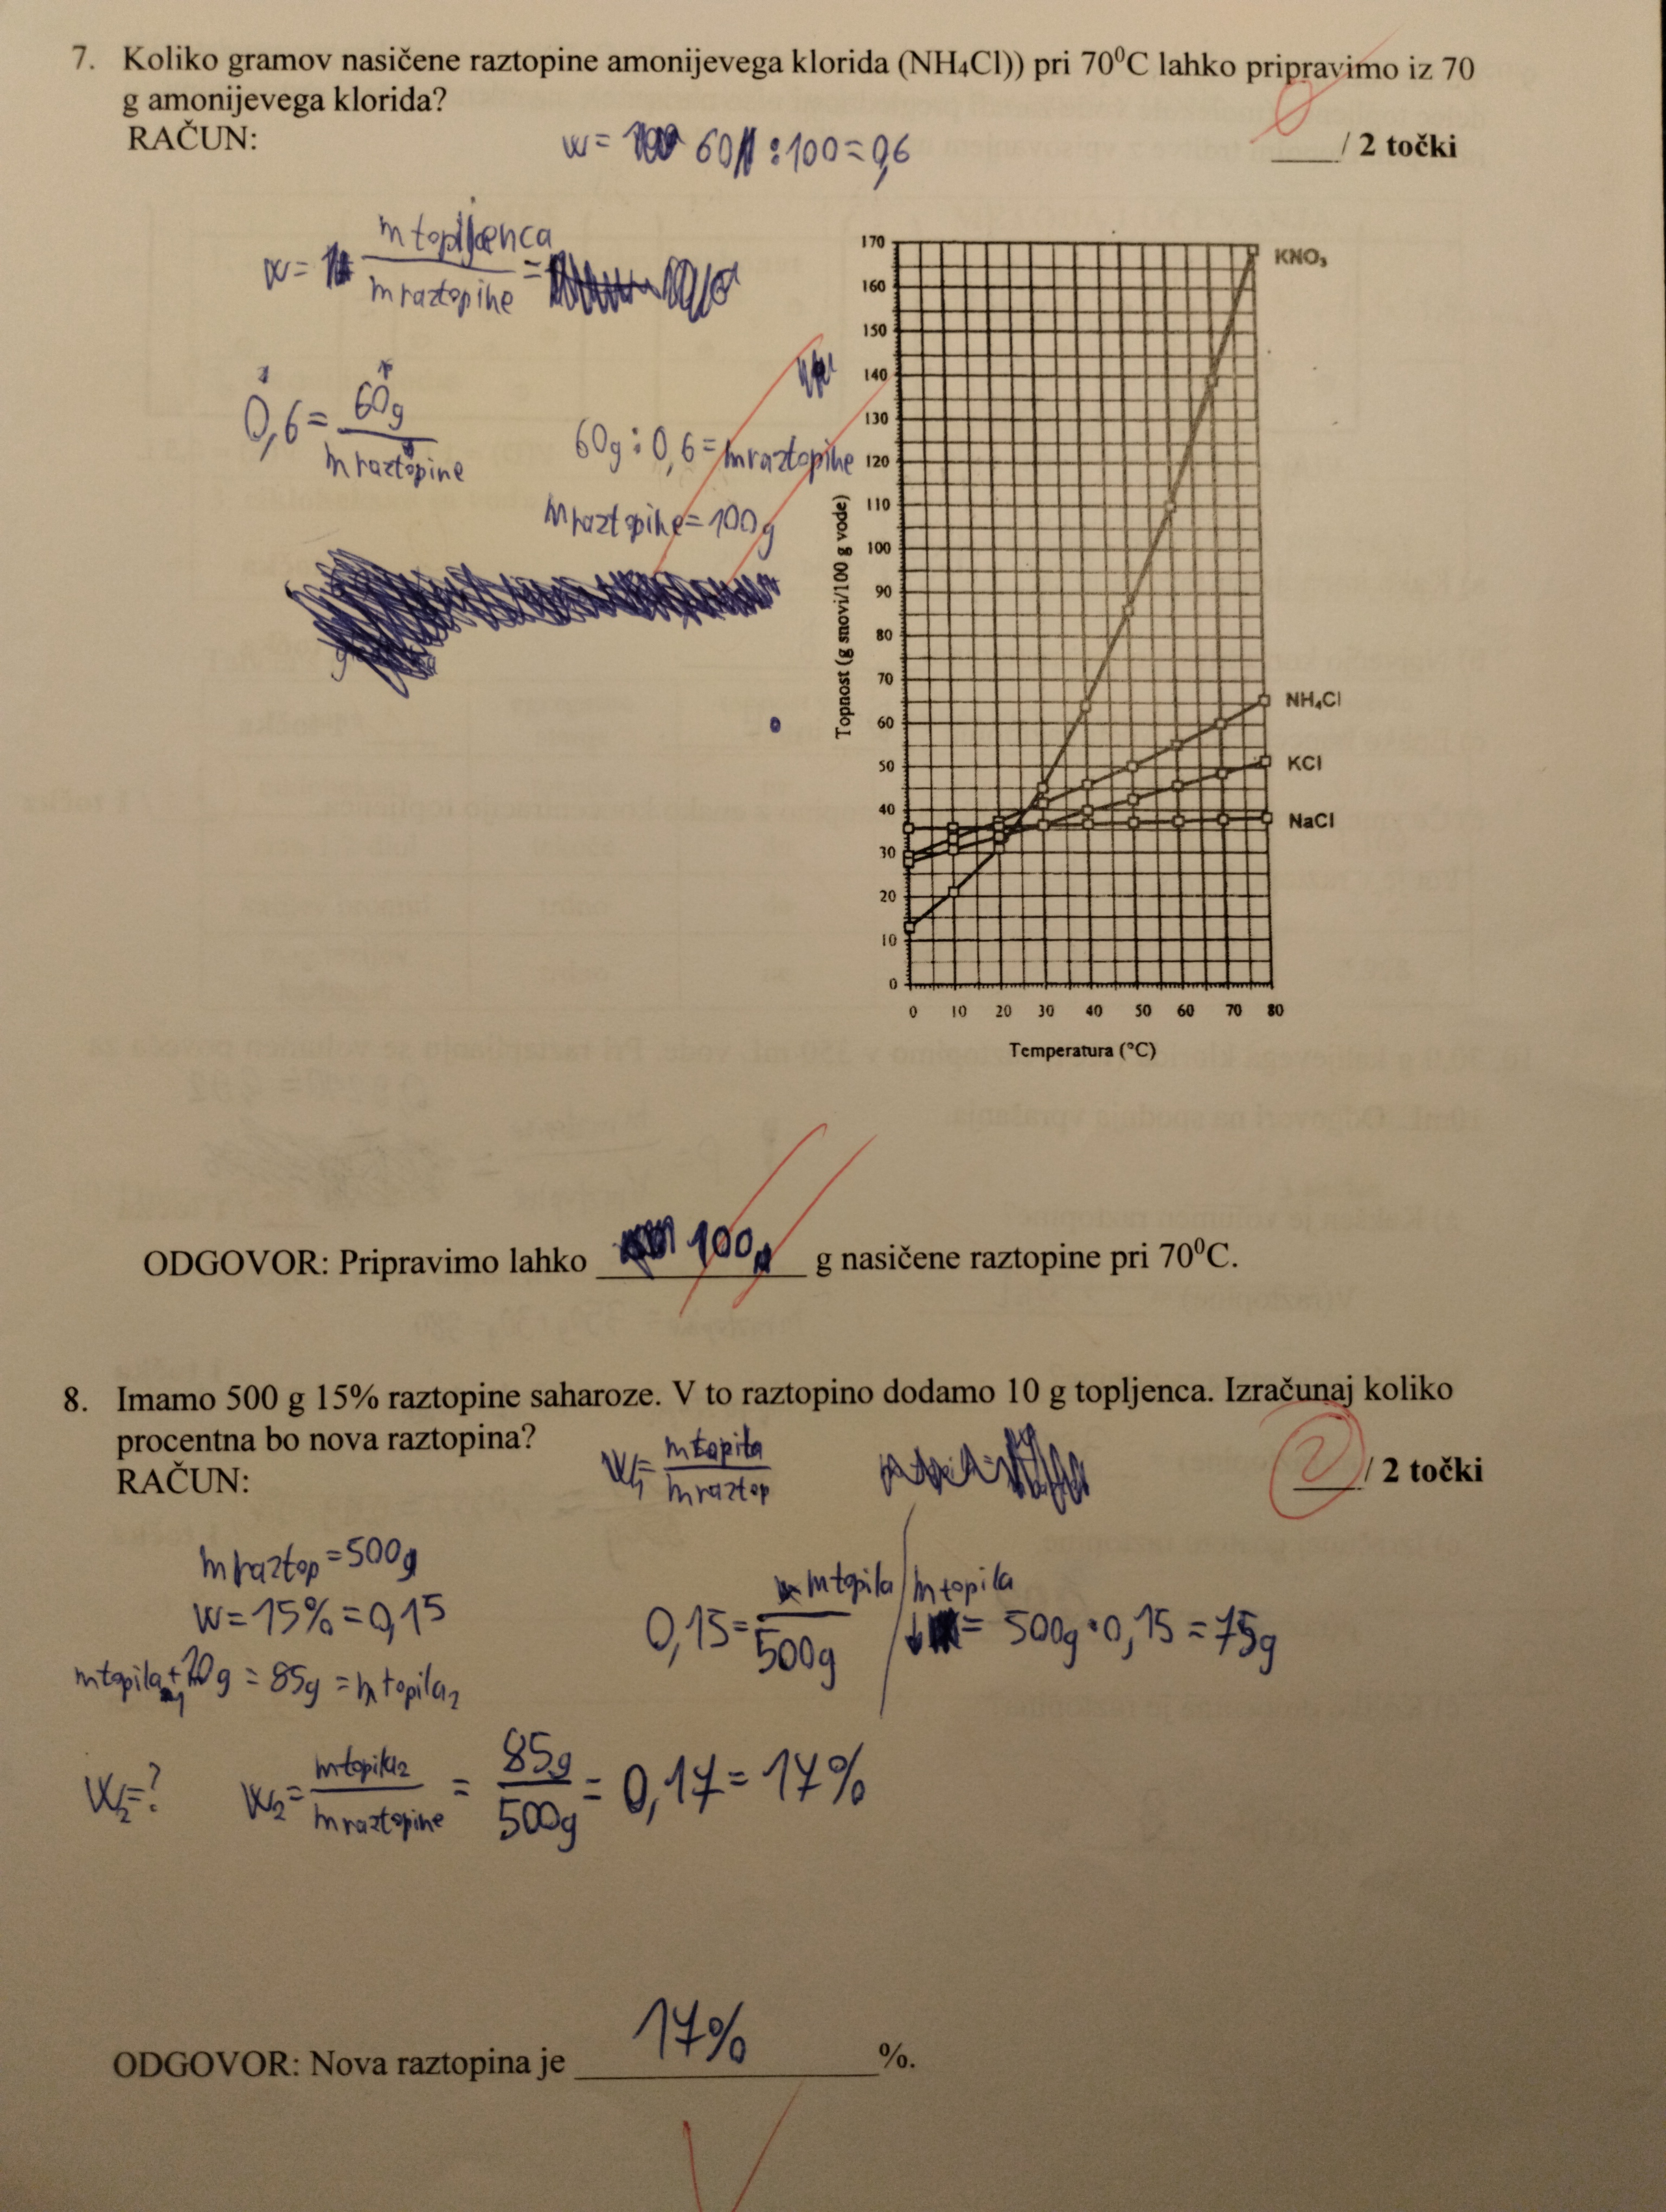 7. Koliko gramov nasičene raztopine amonijevega klorida (NH₄Cl)) pri 70⁰C lahko pripravimo iz 70
g amonijevega klorida?
RAČUN:
0
____/ 2 točki
w = 60 : 100 = 0,6
w = m topljenca / m raztopine =
0,6 = 60g / m raztopine
60g : 0,6 = m raztopine
m raztopine = 100g
Topnost (g snovi/100 g vode)
170
160
150
140
130
120
110
100
90
80
70
60
50
40
30
20
10
0
KNO₃
NH₄Cl
KCl
NaCl
0 10 20 30 40 50 60 70 80
Temperatura (°C)
ODGOVOR: Pripravimo lahko 100 g nasičene raztopine pri 70⁰C.
8. Imamo 500 g 15% raztopine saharoze. V to raztopino dodamo 10 g topljenca. Izračunaj koliko
procentna bo nova raztopina?
RAČUN:
w₁ = m topila / m raztop
2
____/ 2 točki
m raztop = 500g
w = 15% = 0,15
0,15 = m topila / 500g
m topila = 500g · 0,15 = 75g
m topila₁ + 10g = 85g = m topila₂
w₂ = ?
w₂ = m topila₂ / m raztopine = 85g / 500g = 0,17 = 17%
ODGOVOR: Nova raztopina je 17% %.